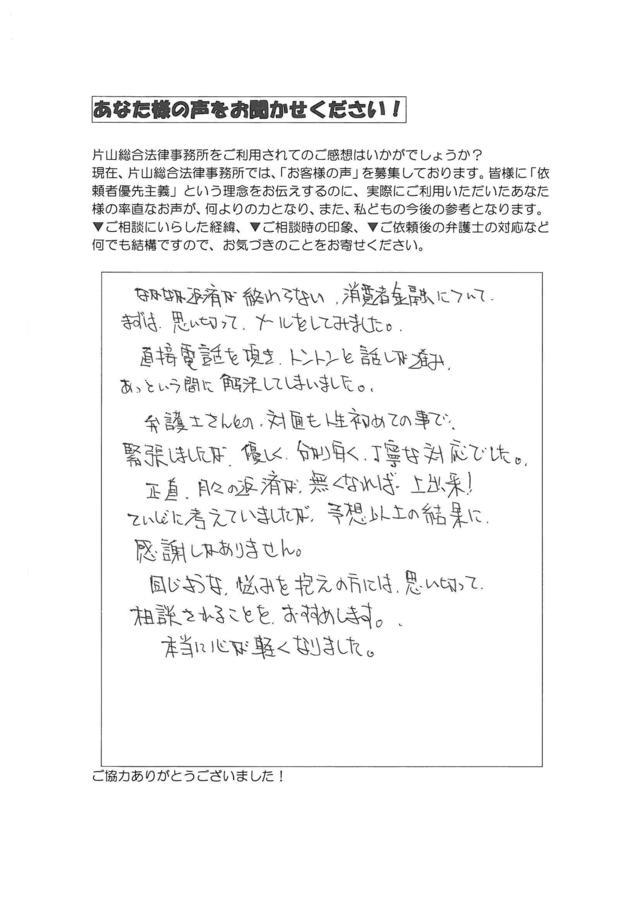 あなた様の声をお聞かせください！
片山総合法律事務所をご利用されてのご感想はいかがでしょうか？
現在、片山総合法律事務所では、「お客様の声」を募集しております。皆様に「依
頼者優先主義」という理念をお伝えするのに、実際にご利用いただいたあなた
様の率直なお声が、何よりの力となり、また、私どもの今後の参考となります。
▼ご相談にいらした経緯、▼ご相談時の印象、▼ご依頼後の弁護士の対応など
何でも結構ですので、お気づきのことをお寄せください。
なかなか返済が終わらない、消費者金融について
まずは、思い切って、メールをしてみました。
直接電話を頂き、トントンと話しが進み、
あっという間に解決してしまいました。
弁護士さんとの、対面も人生初めての事で、
緊張しましたが、優しく、分かり易く、丁寧な対応でした。
正直、月々の返済が、無くなれば、上出来！
ていどに考えていましたが、予想以上の結果に
感謝しかありません。
同じような、悩みを抱えの方には、思い切って
相談されることを、おすすめします。
本当に心が軽くなりました。
ご協力ありがとうございました！